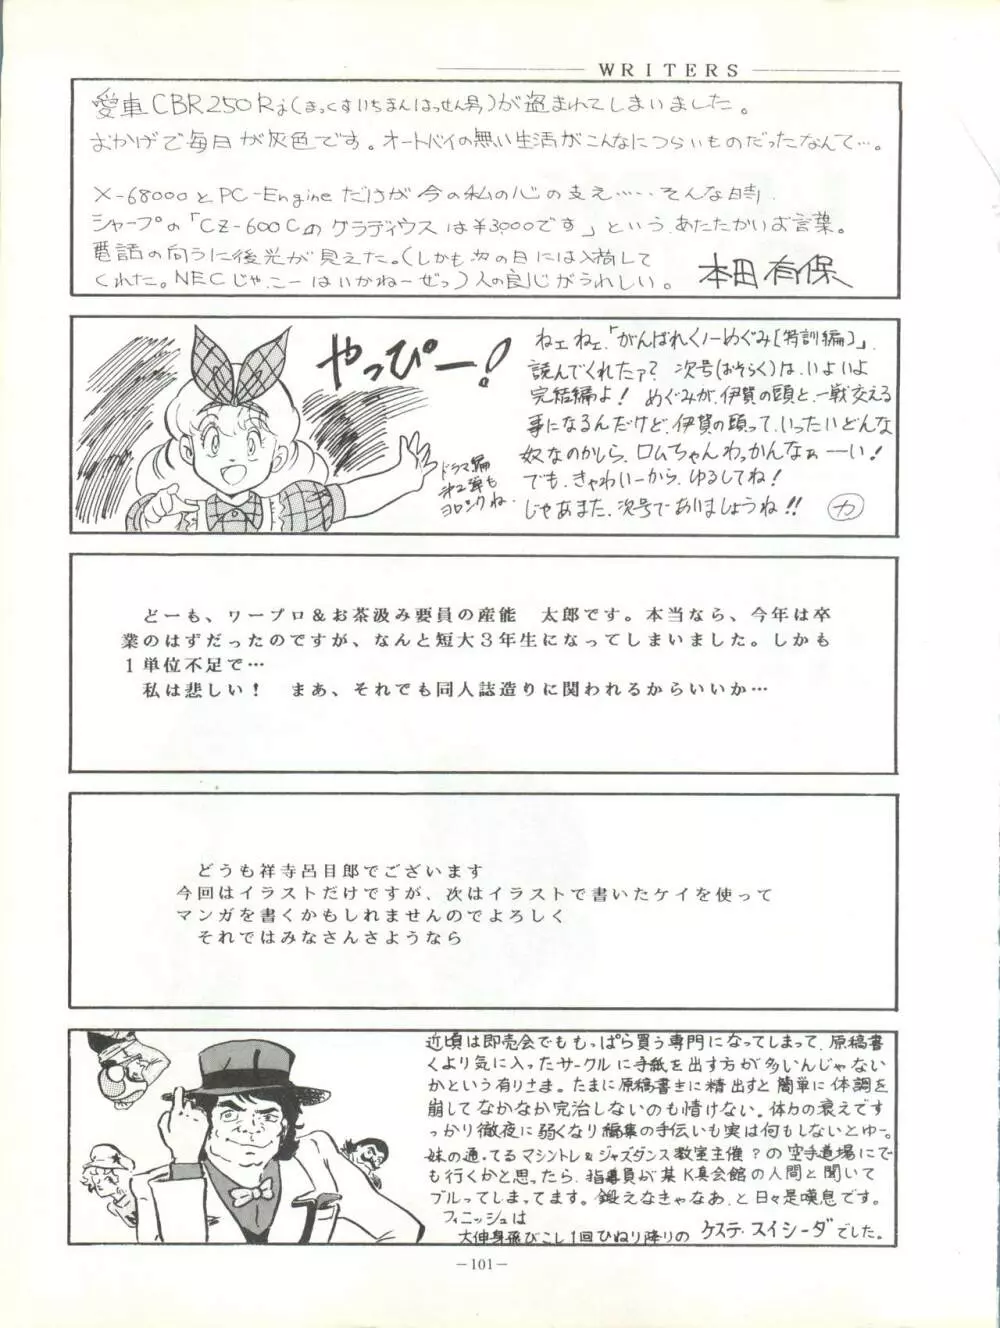 WRITERS
愛車CBR250Rj(まっくすいちまんはっせん号)が盗まれてしまいました。
おかげで毎日が灰色です。オートバイの無い生活がこんなにつらいものだったなんて…。
X-68000とPC-Engineだけが今の私の心の支え……そんな時、
シャープの「CZ-600Cのグラディウスは¥3,000です」という、あたたかいお言葉。
電話の向うに後光が見えた。(しかも次の日には入荷して
くれた。NECじゃこーはいかねーぜっ)人の良心がうれしい。
本田有保
やっぴー!
ドラマ編
オ2弾も
ヨロシクね。
ねェねェ、「がんばれくノ一めぐみ[特訓編]」、
読んでくれたァ? 次号(おそらく)は、いよいよ
完結編よ! めぐみが、伊賀の頭と、一戦交える
事になるんだけど、伊賀の頭って、いったいどんな
奴なのかしら、ロムちゃんわっかんなぁーい!
でも、きゃわいーから、ゆるしてね!
じゃあまた、次号であいましょうね!! カ
どーも、ワープロ&お茶汲み要員の産能 太郎です。本当なら、今年は卒
業のはずだったのですが、なんと短大3年生になってしまいました。しかも
1単位不足で…
私は悲しい! まあ、それでも同人誌造りに関われるからいいか…
どうも祥寺呂目郎でございます
今回はイラストだけですが、次はイラストで書いたケイを使って
マンガを書くかもしれませんのでよろしく
それではみなさんさようなら
近頃は即売会でももっぱら買う専門になってしまって、原稿書
くより気に入ったサークルに手紙を出す方が多いんじゃない
かという有りさま。たまに原稿書きに精出すと簡単に体調を
崩してなかなか完治しないのも情けない。体力の衰えです
っかり徹夜に弱くなり編集の手伝いも実は何もしないとゆー。
妹の通ってるマシントレ&ジャズダンス教室主催?の空手道場にで
も行くかと思ったら、指導員が某K真会館の人間と聞いて
ブルってしまってます。鍛えなきゃなあ、と日々是嘆息です。
フィニッシュは
大伸身飛びこし1回ひねり降りの ケステ・スイシーダでした。
—101—